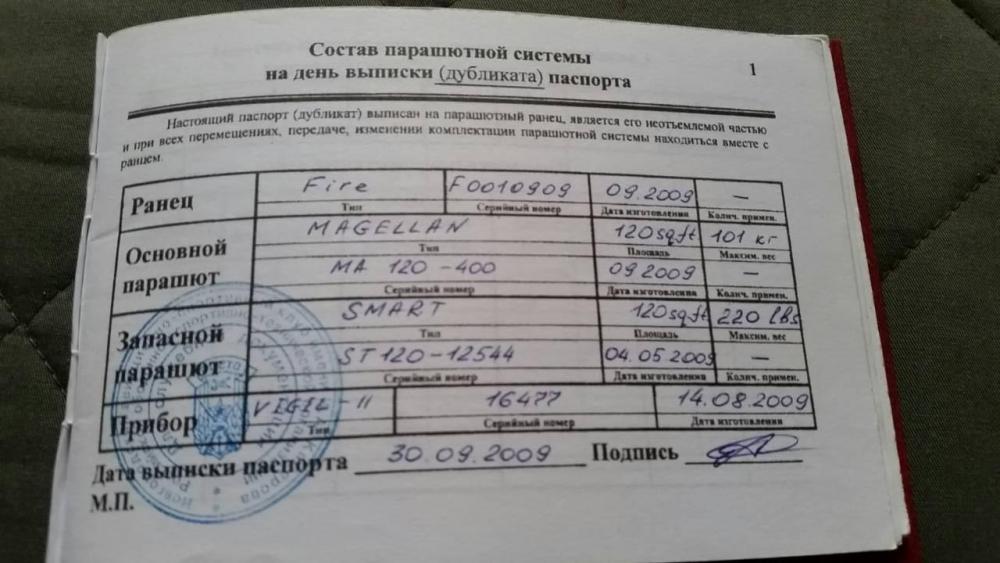 Состав парашютной системы
на день выписки (дубликата) паспорта
1
Настоящий паспорт (дубликат) выписан на парашютный ранец, является его неотъемлемой частью
и при всех перемещениях, передаче, изменении комплектации парашютной системы находиться вместе с
ранцем.
Ранец Fire F0010909 09.2009 —
Тип Серийный номер Дата изготовления Колич. примен.
Основной парашют MAGELLAN 120 sq.ft 101 кг
Тип Площадь Максим. вес
MA 120-400 09 2009 —
Серийный номер Дата изготовления Колич. примен.
Запасной парашют SMART 120 sq.ft 220 lbs
Тип Площадь Максим. вес
ST120-12544 04.05 2009 —
Серийный номер Дата изготовления Колич. примен.
Прибор VIGIL-II 16477 14.08.2009
Тип Серийный номер Дата изготовления
Дата выписки паспорта 30.09.2009 Подпись
М.П.